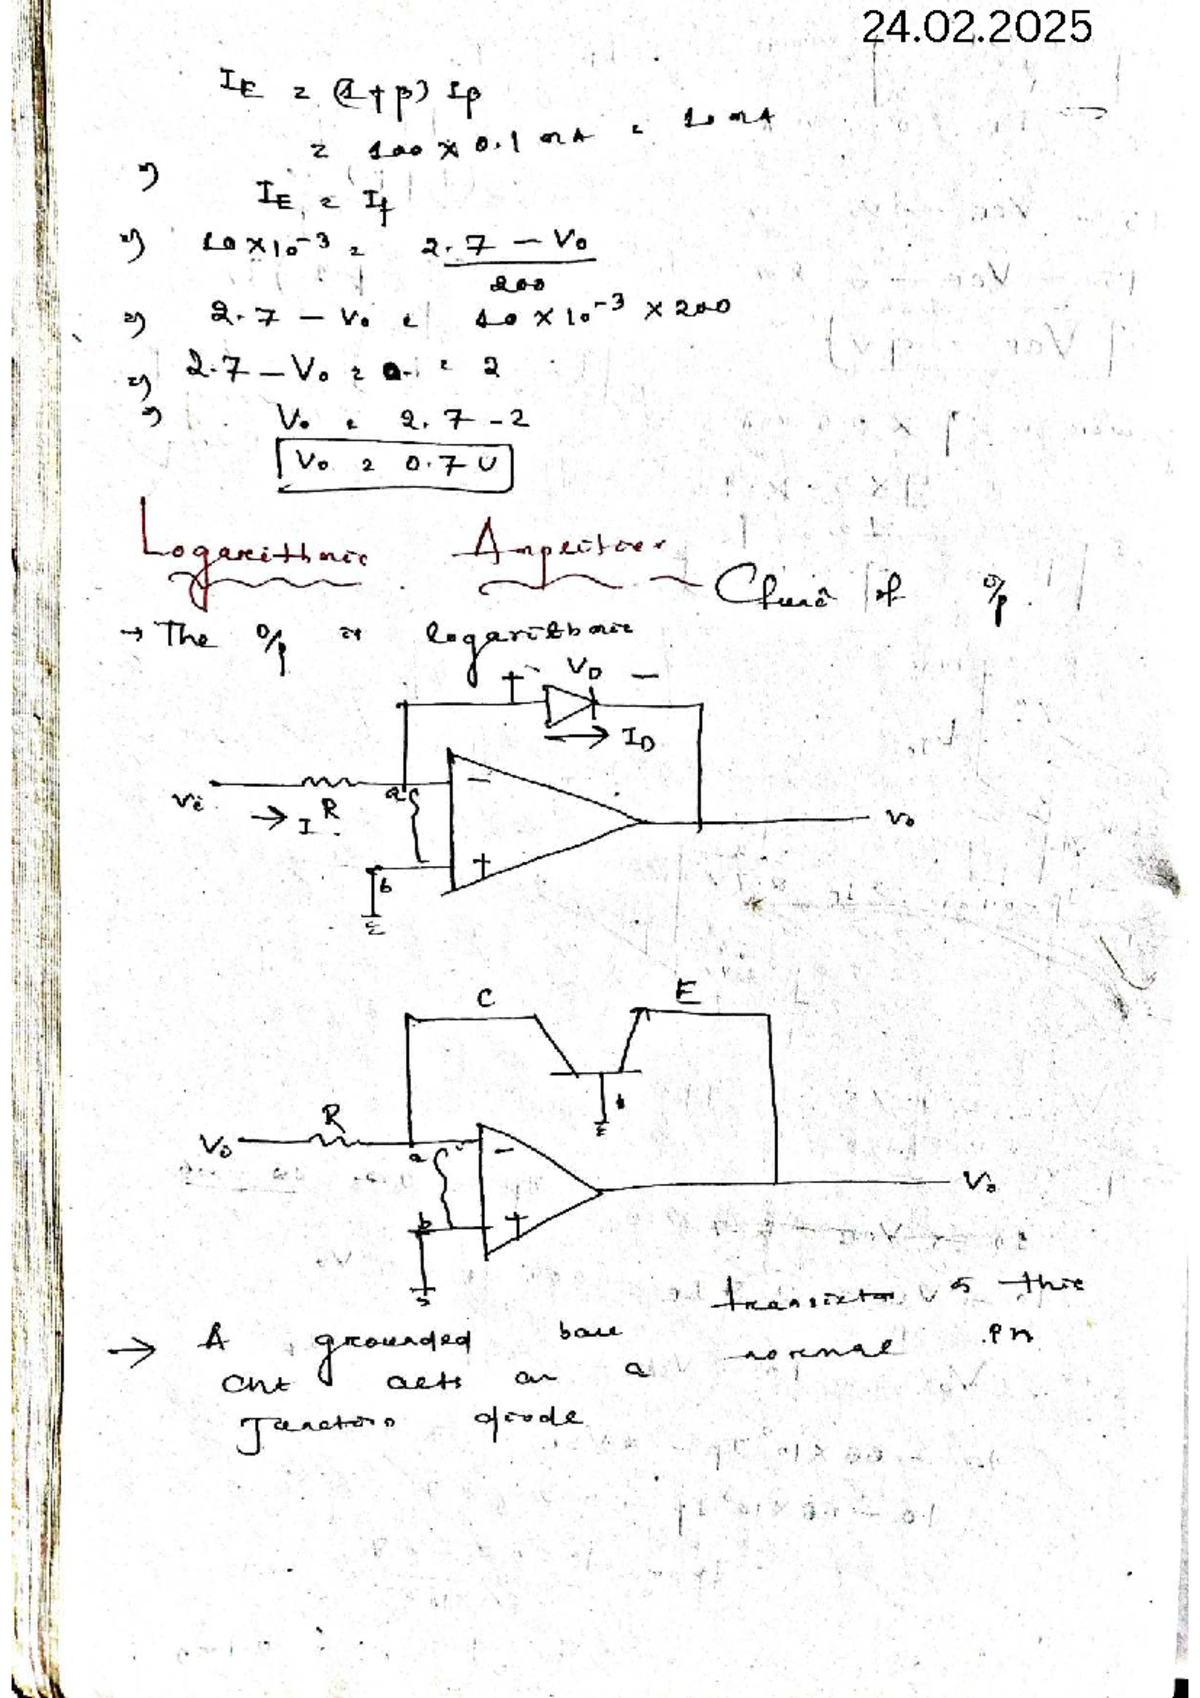 24.02.2025
I_E = (1+β) I_β
= 100 × 0.1 mA = 10 mA
⇒ I_E = I_f
⇒ 10×10⁻³ = 2.7 − V₀ / 200
⇒ 2.7 − V₀ = 10 × 10⁻³ × 200
⇒ 2.7 − V₀ = = 2
⇒ V₀ = 2.7 - 2
V₀ = 0.7 V
Logarithmic Amplifier
of o/p.
→ The o/p is logarithmic
+ V_D −
I_D
Vi R a −
→ I
V₀
b +
C E
b
R
V₀ a −
V₀
b +
→ A grounded base transistor this
ckt acts as a normal pn
Junction diode